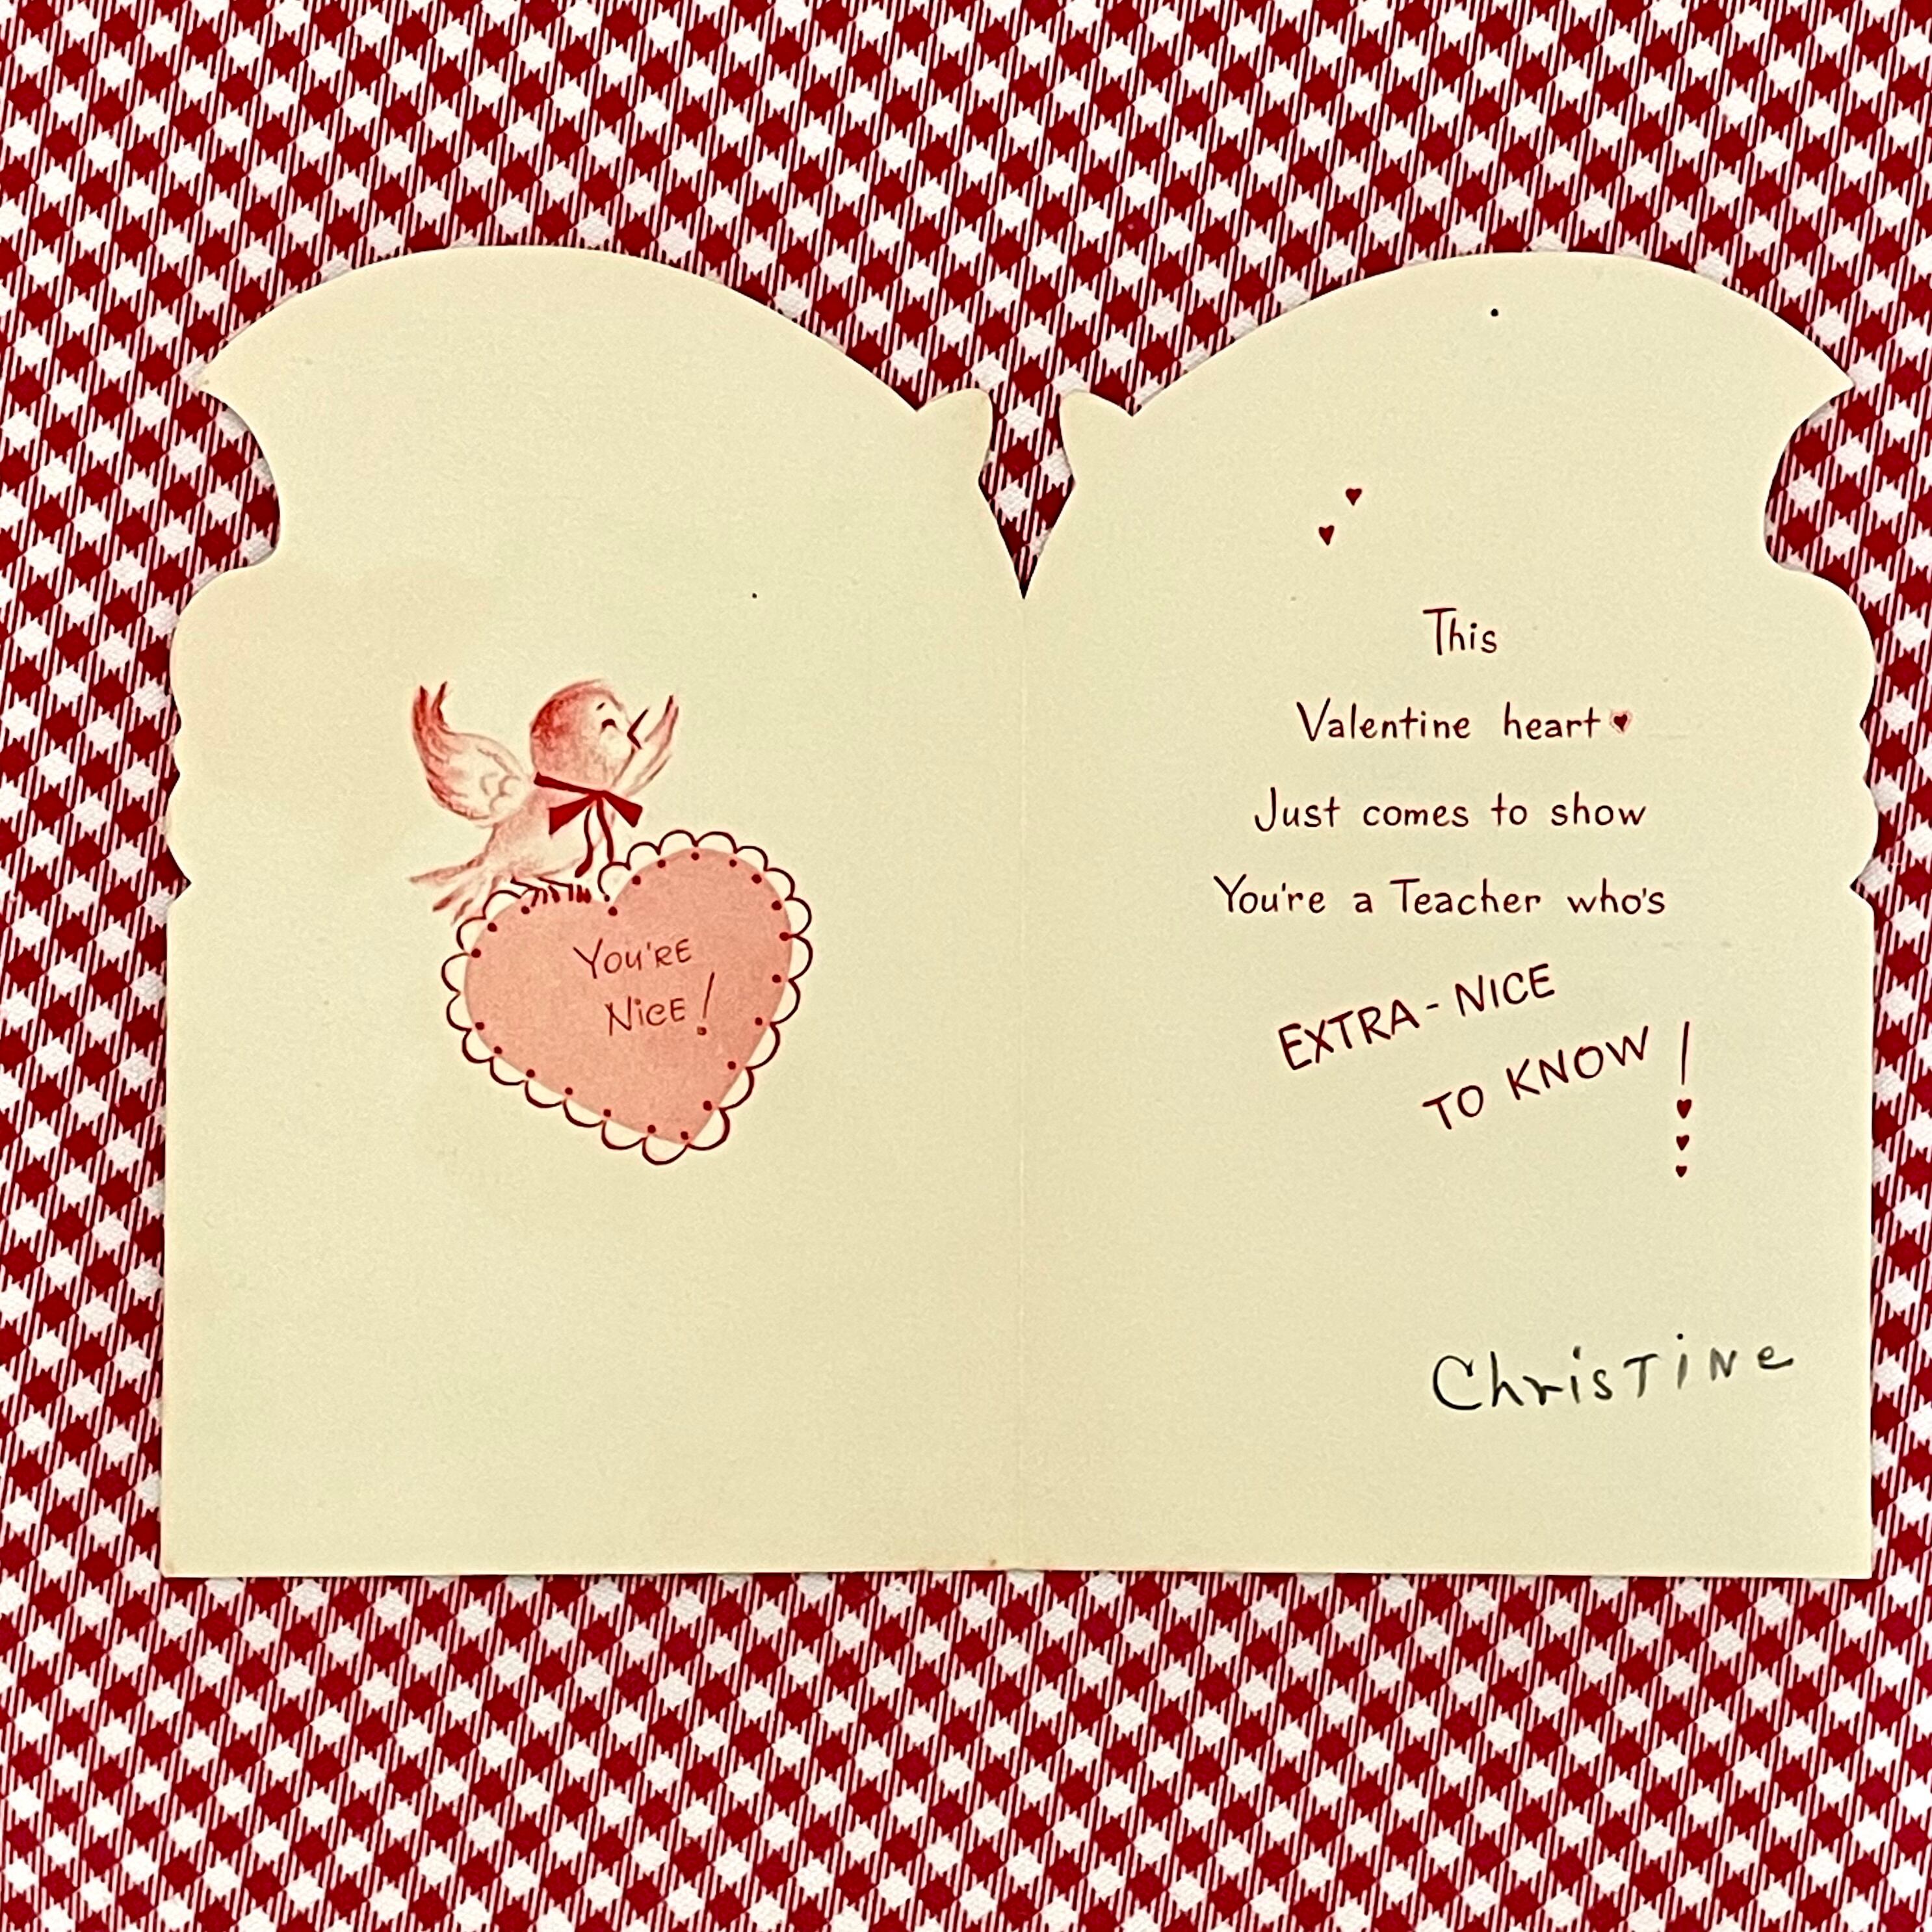 You're
Nice!
This
Valentine heart
Just comes to show
You're a Teacher who's
EXTRA-NICE
TO KNOW!
Christine